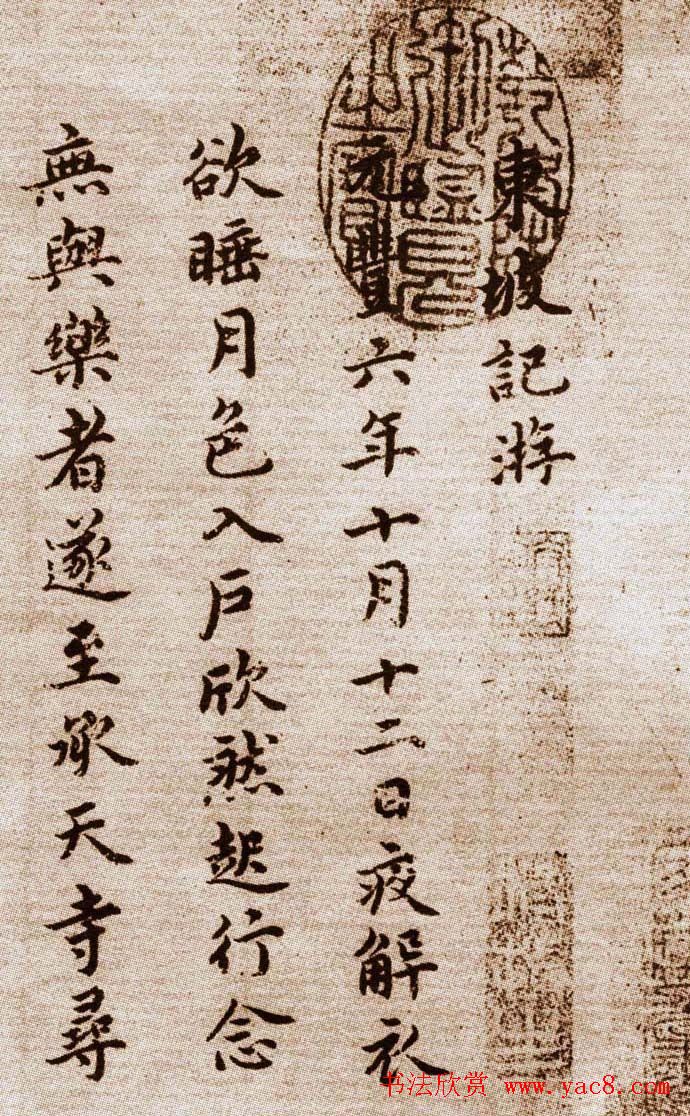 東坡記游
元豐六年十月十二日夜解衣
欲睡月色入戶欣然起行念
無與樂者遂至承天寺尋
书法欣赏 www.yac8.com